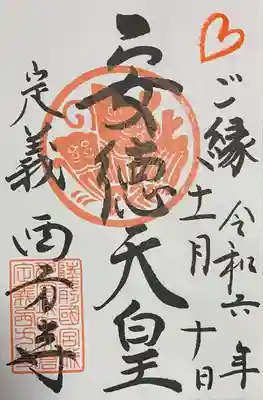 ご縁
令和六年
十一月十日
安徳天皇
定義
西方寺